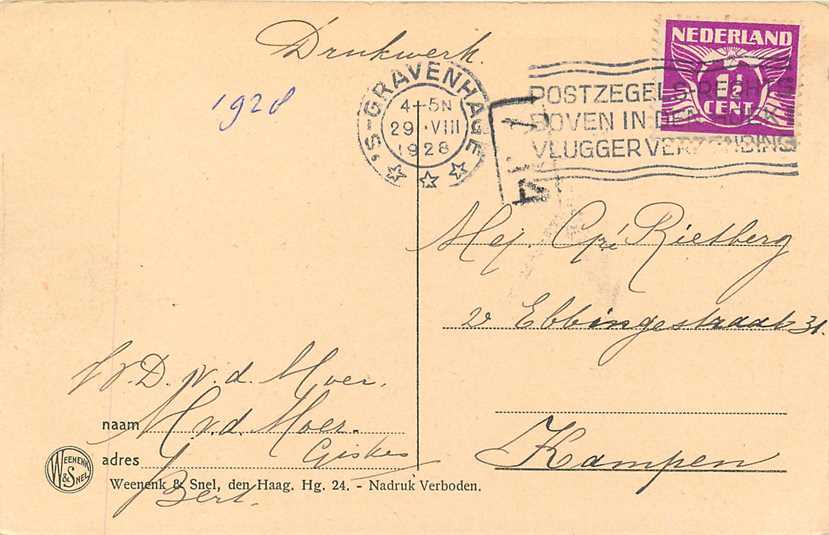 Drukwerk.
1928
'S-GRAVENHAGE
4-5N
29.VIII
1928
POSTZEGELS RECHTS
BOVEN IN DEN HOEK
VLUGGER VERZENDING
NEDERLAND
1½
CENT
Mej. Rietberg
v Ebbingestraat 31.
Kampen
W.D. v.d. Moer.
naam M.v.d. Moer.
adres
Bert.
WEENENK & SNEL
Weenenk & Snel, den Haag. Hg. 24. - Nadruk Verboden.